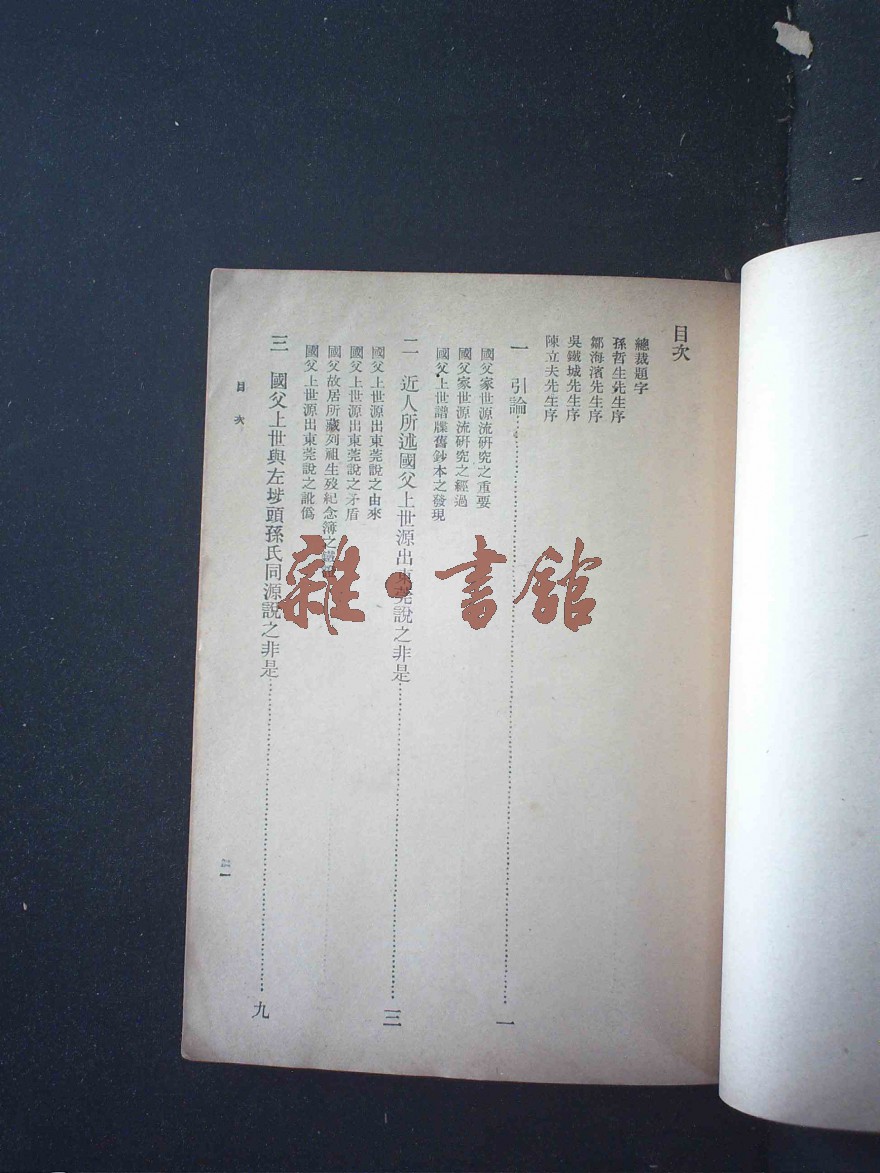 目次
總裁題字
孫哲生先生序
鄒海濱先生序
吳鐵城先生序
陳立夫先生序
一 引論……一
國父家世源流研究之重要
國父家世源流研究之經過
國父上世譜牒舊鈔本之發現
二 近人所述國父上世源出東莞說之非是……三
國父上世源出東莞說之由來
國父上世源出東莞說之矛盾
國父故居所藏列祖生歿紀念簿之
國父上世源出東莞說之訛僞
三 國父上世與左埗頭孫氏同源說之非是……九
目次
一
雜·書館